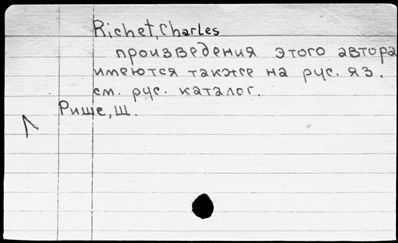 Richet, Charles
произведения этого автора
имеются также на рус. яз.
см. рус. каталог.
Рише, Ш.